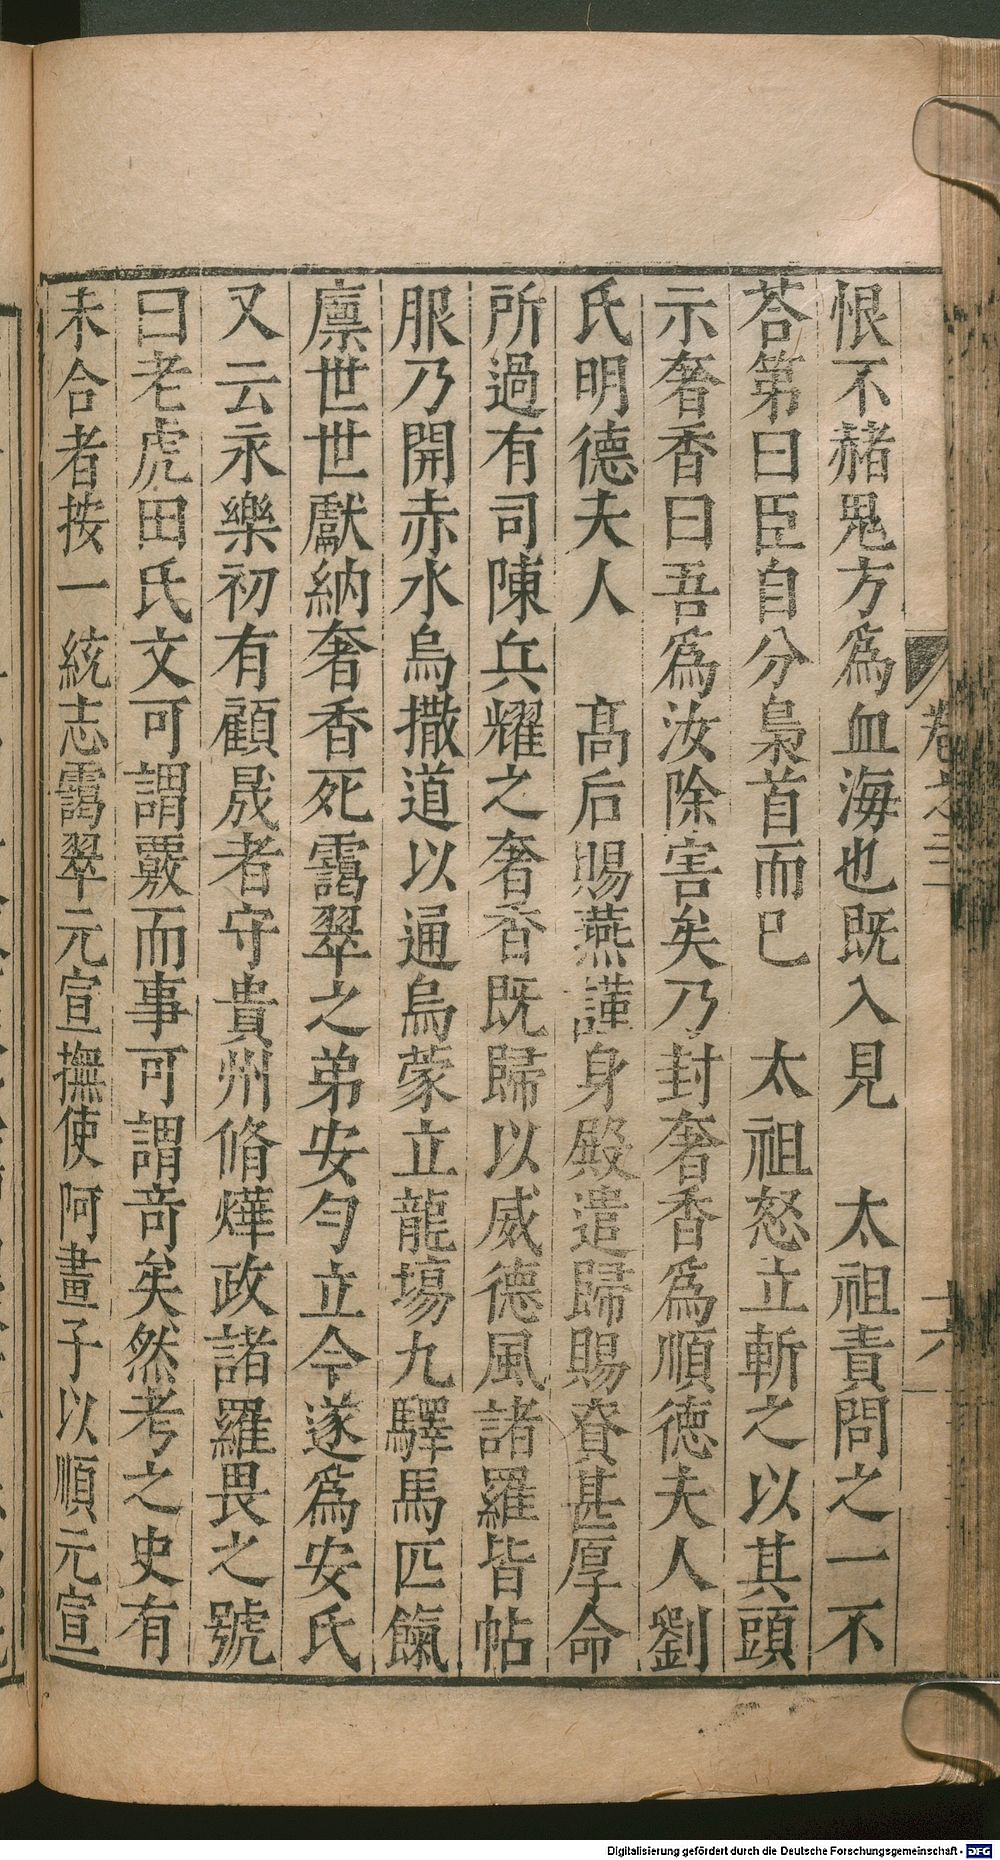 恨不赭鬼方爲血海也既入見　太祖責問之一不
荅第曰臣自分梟首而已　太祖怒立斬之以其頭
示奢香曰吾爲汝除害矣乃封奢香爲順德夫人劉
氏明德夫人　高后賜燕謹身殿遣歸賜賚甚厚命
所過有司陳兵耀之奢香既歸以威德風諸羅皆帖
服乃開赤水烏撒道以通烏蒙立龍塲九驛馬匹餼
廪世世獻納奢香死靄翠之弟安勻立令遂爲安氏
又云永樂初有顧晟者守貴州脩燁政諸羅畏之號
曰老虎田氏文可謂覈而事可謂竒矣然考之史有
未合者按一統志靄翠元宣撫使阿畫子以順元宣
卷之三
十六
Digitalisierung gefördert durch die Deutsche Forschungsgemeinschaft - DFG